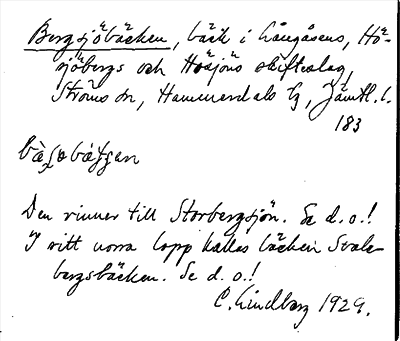 Bergsjöbäcken, bäck i Långåsens, Hö-
sjöbergs och Hösjöns skifteslag,
Ströms sn, Hammerdals tg, Jämtl. l.
183
Den rinner till Storbergsjön. Se d.o.!
I sitt norra lopp kallas bäcken Svale-
bergsbäcken. Se d.o.!
C. Lindberg 1929.